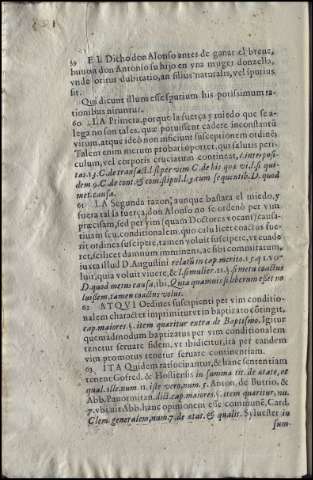 59 EL Dicho don Alonso antes de ganar el breue,
huuo a don Antonio su hijo en vna muger donzella,
vnde oritur dubitatio, an filius naturalis, vel spurius
sit.
Qui dicunt illum esse spurium his potissimum
rationibus nituntur.
60 LA Primera, porque la fuerça y miedo que
alega no son tales, quæ potuissent cadere in constantē
virum, atque ideò non inficiunt susceptionem ordinis.
Talem enim metum probari oportet, qui salutis
periculum, vel corporis cruciatum contineat, l. interpositas
13. C. de transac. l. si per vim C. de his
met. causa.
61 LA Segunda razon, aunque bastara el miedo, y
fuera tal la fuerça, don Alonso no se ordenò per vim
præcisam, sed per vim (quam Doctores vocant)
quo casu licet coactus fuerit
ordines suscipere, tamen voluit suscipere, vt
scilicet damnum imminens, ac sibi comitatum,
iuxta illud D. Augustini relatum cap. merito. 15. q. 1.
quia voluit viuere, & l. si mulier. 21. §. si metu coactus
D. quod metus causa, ibi, Quia quamuis si liberum esset
noluissem, tamen coactus volui.
62 ATQVI Ordines suscipienti per vim
characterē imprimitur, vt in baptizato cōtingit,
cap. maiores §. item quæritur extra de Baptismo. Igitur
quemadmodum baptizatus per vim conditionalem
tenetur seruare fidem, vt ibi dicitur, ita per eandem
vim promotus tenetur seruare continentiam.
63 ITA Quidem ratiocinantur, & hanc sententiam
tenent Gofred. & Hostiensis in summa tit. de ætate, et
qual. ille num. 11. iste vero, num. 5. Anton. de Butrio, &
Abb. Panormitan. dict. cap. maiores §. item quæritur, nu.
7. vbi ait Abb. hanc opinionem esse communē, Card.
Clem. generalem, num. 7. de ætat. & qualit. Syluester in
sum-